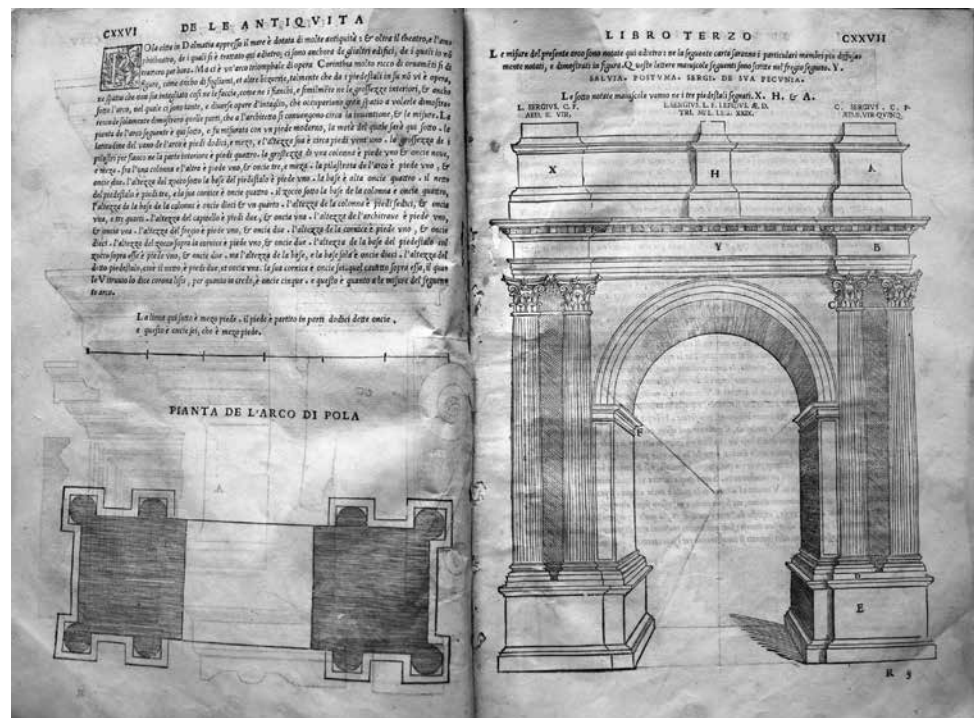 CXXVI DE LE ANTIQVITA
Ola citta in Dalmatia appresso il mare è dotata di molte antiquità : & oltra il theatro, e l'amphitheatro, de i quali si è trattato qui adietro; ci sono anchora de gli altri edifici, de i quali io nõ
figure, come ancho di fogliami, et altre bizarrie, talmente che da i piedestali in su nõ vi è opera,
ne spatio che non sia intagliato cosi ne le faccie, come ne i fianchi, e similmẽte ne le grossezze interiori, & ancho
sotto l'arco, nel quale ci sono tante, e diverse opere d'intaglio, che occuperiano gran spatio a volerle dimostrare
pianta de l'arco seguente è qui sotto, e fu misurata con vn piede moderno, la metà del quale sarà qui sotto . la
latitudine del vano de l'arco è piedi dodici, e mezo, e l'altezza sua è circa piedi vent'uno . la grossezza de i
pilastri per fianco ne la parte interiore è piedi quattro . la grossezza di vna colonna è piede vno & oncie nove,
e meza . fra l'una colonna e l'altra è piede vno, & oncie tre, e meza . la pilastrata de l'arco è piede vno , &
oncie due . l'altezza del zocco sotto la base del piedestalo è piede vno . la base è alta oncie quattro . il netto
del piedestalo è piedi tre, e la sua cornice è oncie quattro . il zocco sotto la base de la colonna è oncie quattro,
l'altezza de la base de la colonna è oncie dieci & vn quarto . l'altezza de la colonna è piedi sedici, & oncia
vna, e tre quarti . l'altezza del capitello è piedi due , & oncia vna . l'altezza de l'architrave è piede vno,
& oncia vna . l'altezza del fregio è piede vno, & oncie due . l'altezza de la cornice è piede vno , & oncie
dieci . l'altezza del zocco sopra la cornice è piede vno, & oncie due . l'altezza de la base del piedestalo sul
zocco sopra esse è piede vno, & oncie due . ma l'altezza de la base, e la base sola è oncie dieci . l'altezza del
detto piedestalo, cioè il netto è piedi due, et oncia vna. la sua cornice è oncie sei, quel cavetto sopra essa, il quale
Vitruvio lo dice corona lisis , per quanto io credo, è oncie cinque . e questo è quanto a le misure del seguente
te arco.
La linea qui sotto è mezo piede . il piede è partito in parti dodici dette oncie ,
e queste è oncie sei, che è mezo piede.
PIANTA DE L'ARCO DI POLA
A
LIBRO TERZO CXXVII
Le misure del presente arco sono notate qui adietro : ne la seguente carta saranno i particulari membri piu diffusamente
notati, e dimostrati in figura. Queste lettere maiuscole seguenti sono scritte nel fregio segnato . Y .
SALVIA . POSTVMA . SERGI . DE SVA PECVNIA .
Le sotto notate maiuscole vanno ne i tre piedestali segnati . X . H . & A .
L. SERGIVS . C. F.
L. SERGIVS L. F. LEPIDVS . Æ D.
C. SERGIVS . C. F.
AED. II. VIR.
TRI. MIL. LEG. XXIX.
AED. II. VIR QVINQ.
X H A
Y B
F
D
E
R 3